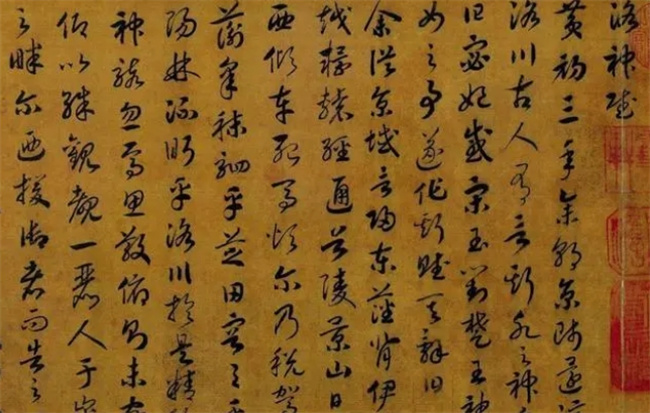 洛神賦
黃初三年余朝京師還
洛川古人有言斯水之神
曰宓妃感宋玉對楚王神
女之事遂作斯賦其辭曰
余從京域言歸東藩背伊
越轘轅經通谷陵景山日
西傾車殆馬煩爾乃稅駕
蘅皋秣駟乎芝田容與乎
陽林流眄乎洛川於是精移
神駭忽焉思散俯則未察
仰以殊觀覩一麗人于巖
之畔爾迺援御者而告之